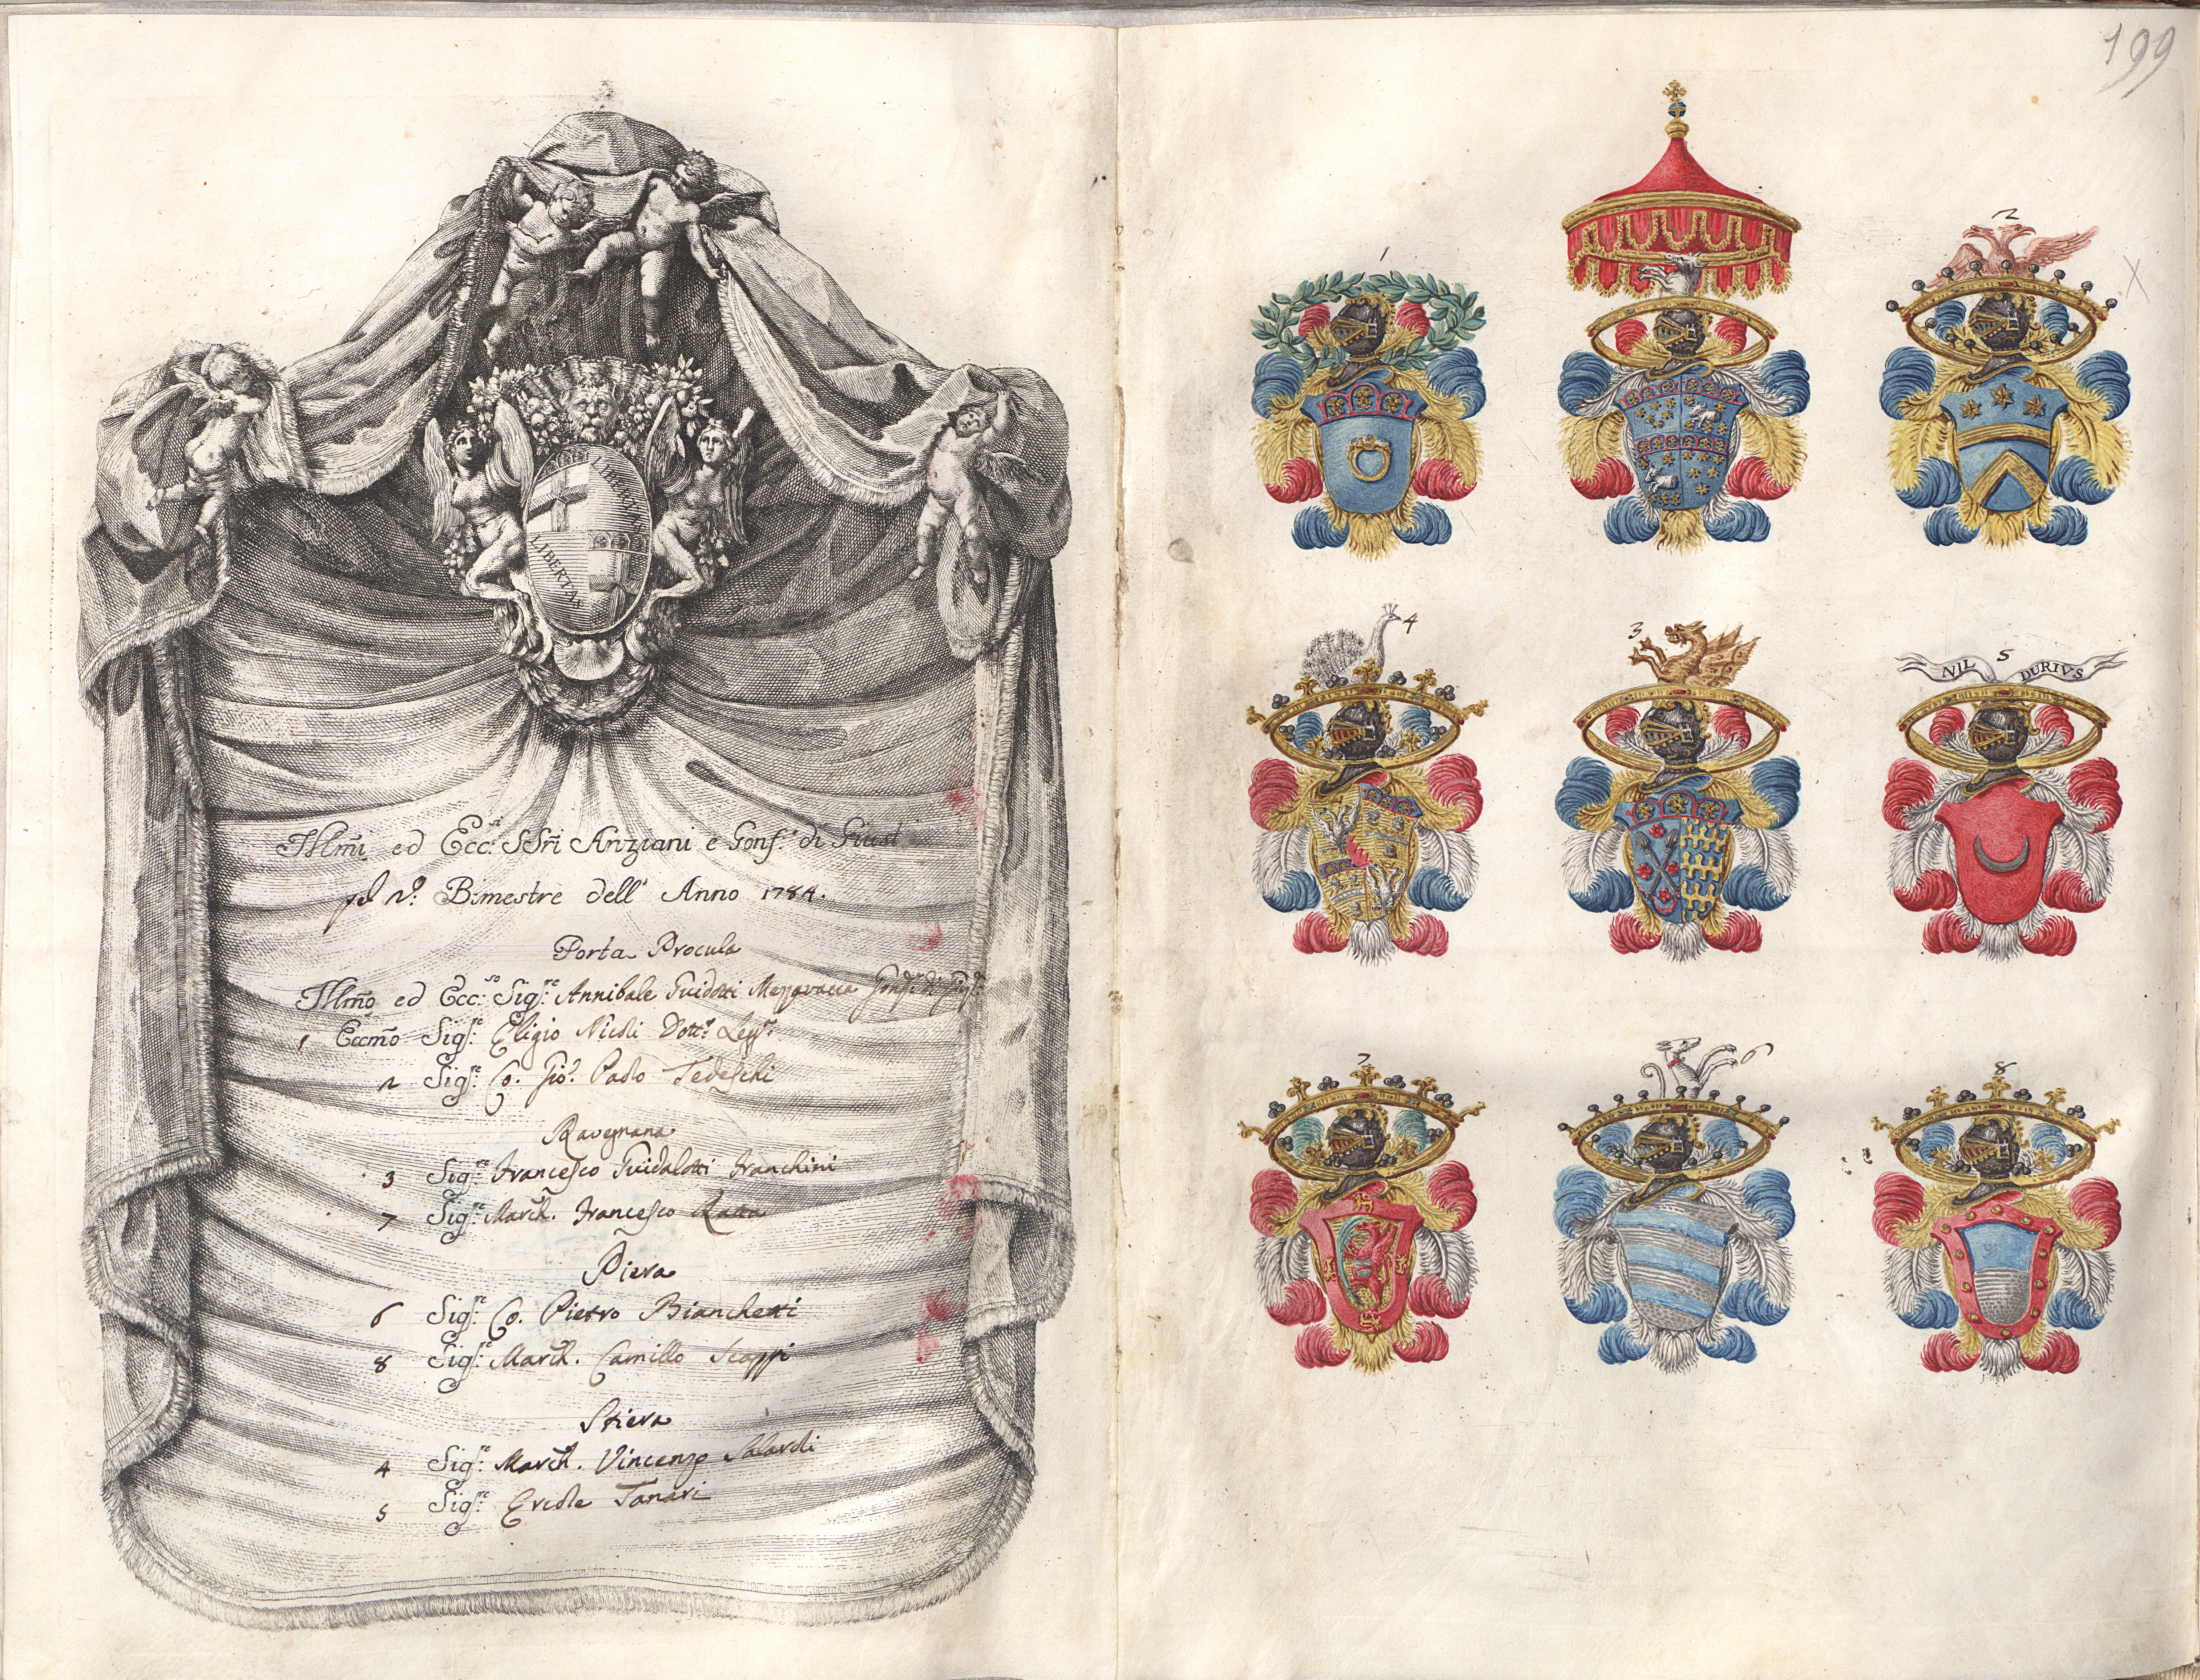 199
LIBERTAS
LIBERTAS
Illmi ed Ecc.si SSri Anziani e Gonf.ri di Giust
pel 2.º Bimestre dell' Anno 1784.
Porta Procula
Illmo ed Ecc.so Sig.re Annibale Guidotti Mezzavacca Gonf.re di Giust.
1 Eccmo Sig.re Eligio Nicoli Dott.e Legg.
2 Sig.re Co. Gio. Paolo Tedeschi
Ravegnana
3 Sig.re Francesco Guidalotti Franchini
7 Sig.re March. Francesco Ratta
Piera
6 Sig.re Co. Pietro Bianchetti
8 Sig.re March. Camillo Scappi
Stiera
4 Sig.re March. Vincenzo Salaroli
5 Sig.re Ercole Tanari
1
2
4
3
5
NIL DURIVS
7
6
8